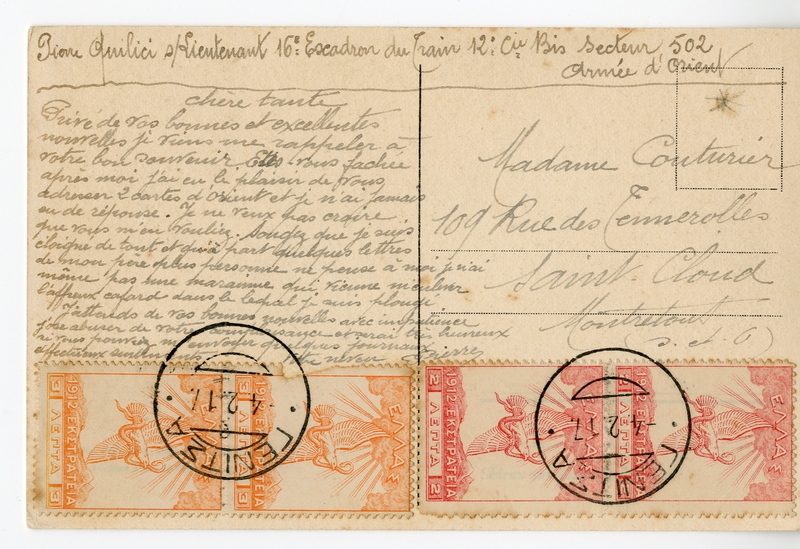 Pierre Quilici s/Lieutenant 16e Escadron du Train 12e Cie Bis Secteur 502
Armée d'Orient
chère tante
Privé de vos bonnes et excellentes
nouvelles je viens me rappeler à
votre bon souvenir. Etes vous fachée
après moi j'ai eu le plaisir de vous
adresser 2 cartes d'Orient et je n'ai jamais
eu de réponse. Je ne veux pas croire
que vous m'en vouliez. Songez que je suis
éloigné de tout et qu'à part quelques lettres
de mon père plus personne ne pense à moi je n'ai
même pas une marraine qui vienne m'enlever
l'affreux cafard dans lequel je suis plongé
J'attends de vos bonnes nouvelles avec impatience
j'ose abuser de votre complaisance et serai très heureux
si vous pouvez m'envoyer quelques journaux
affectueux sentiments votre neveu Pierre
Madame Couturier
109 Rue des Tennerolles
Saint-Cloud
Montretout
(S. et O)
ΕΛΛΑΣ
1912 ΕΚΣΤΡΑΤΕΙΑ
3 ΛΕΠΤΑ 3
ΕΛΛΑΣ
1912 ΕΚΣΤΡΑΤΕΙΑ
3 ΛΕΠΤΑ 3
ΕΛΛΑΣ
1912 ΕΚΣΤΡΑΤΕΙΑ
2 ΛΕΠΤΑ 2
ΕΛΛΑΣ
1912 ΕΚΣΤΡΑΤΕΙΑ
2 ΛΕΠΤΑ 2
-4.2.17
ΓΕΝΙΤΣΑ
-4.2.17
ΓΕΝΙΤΣΑ